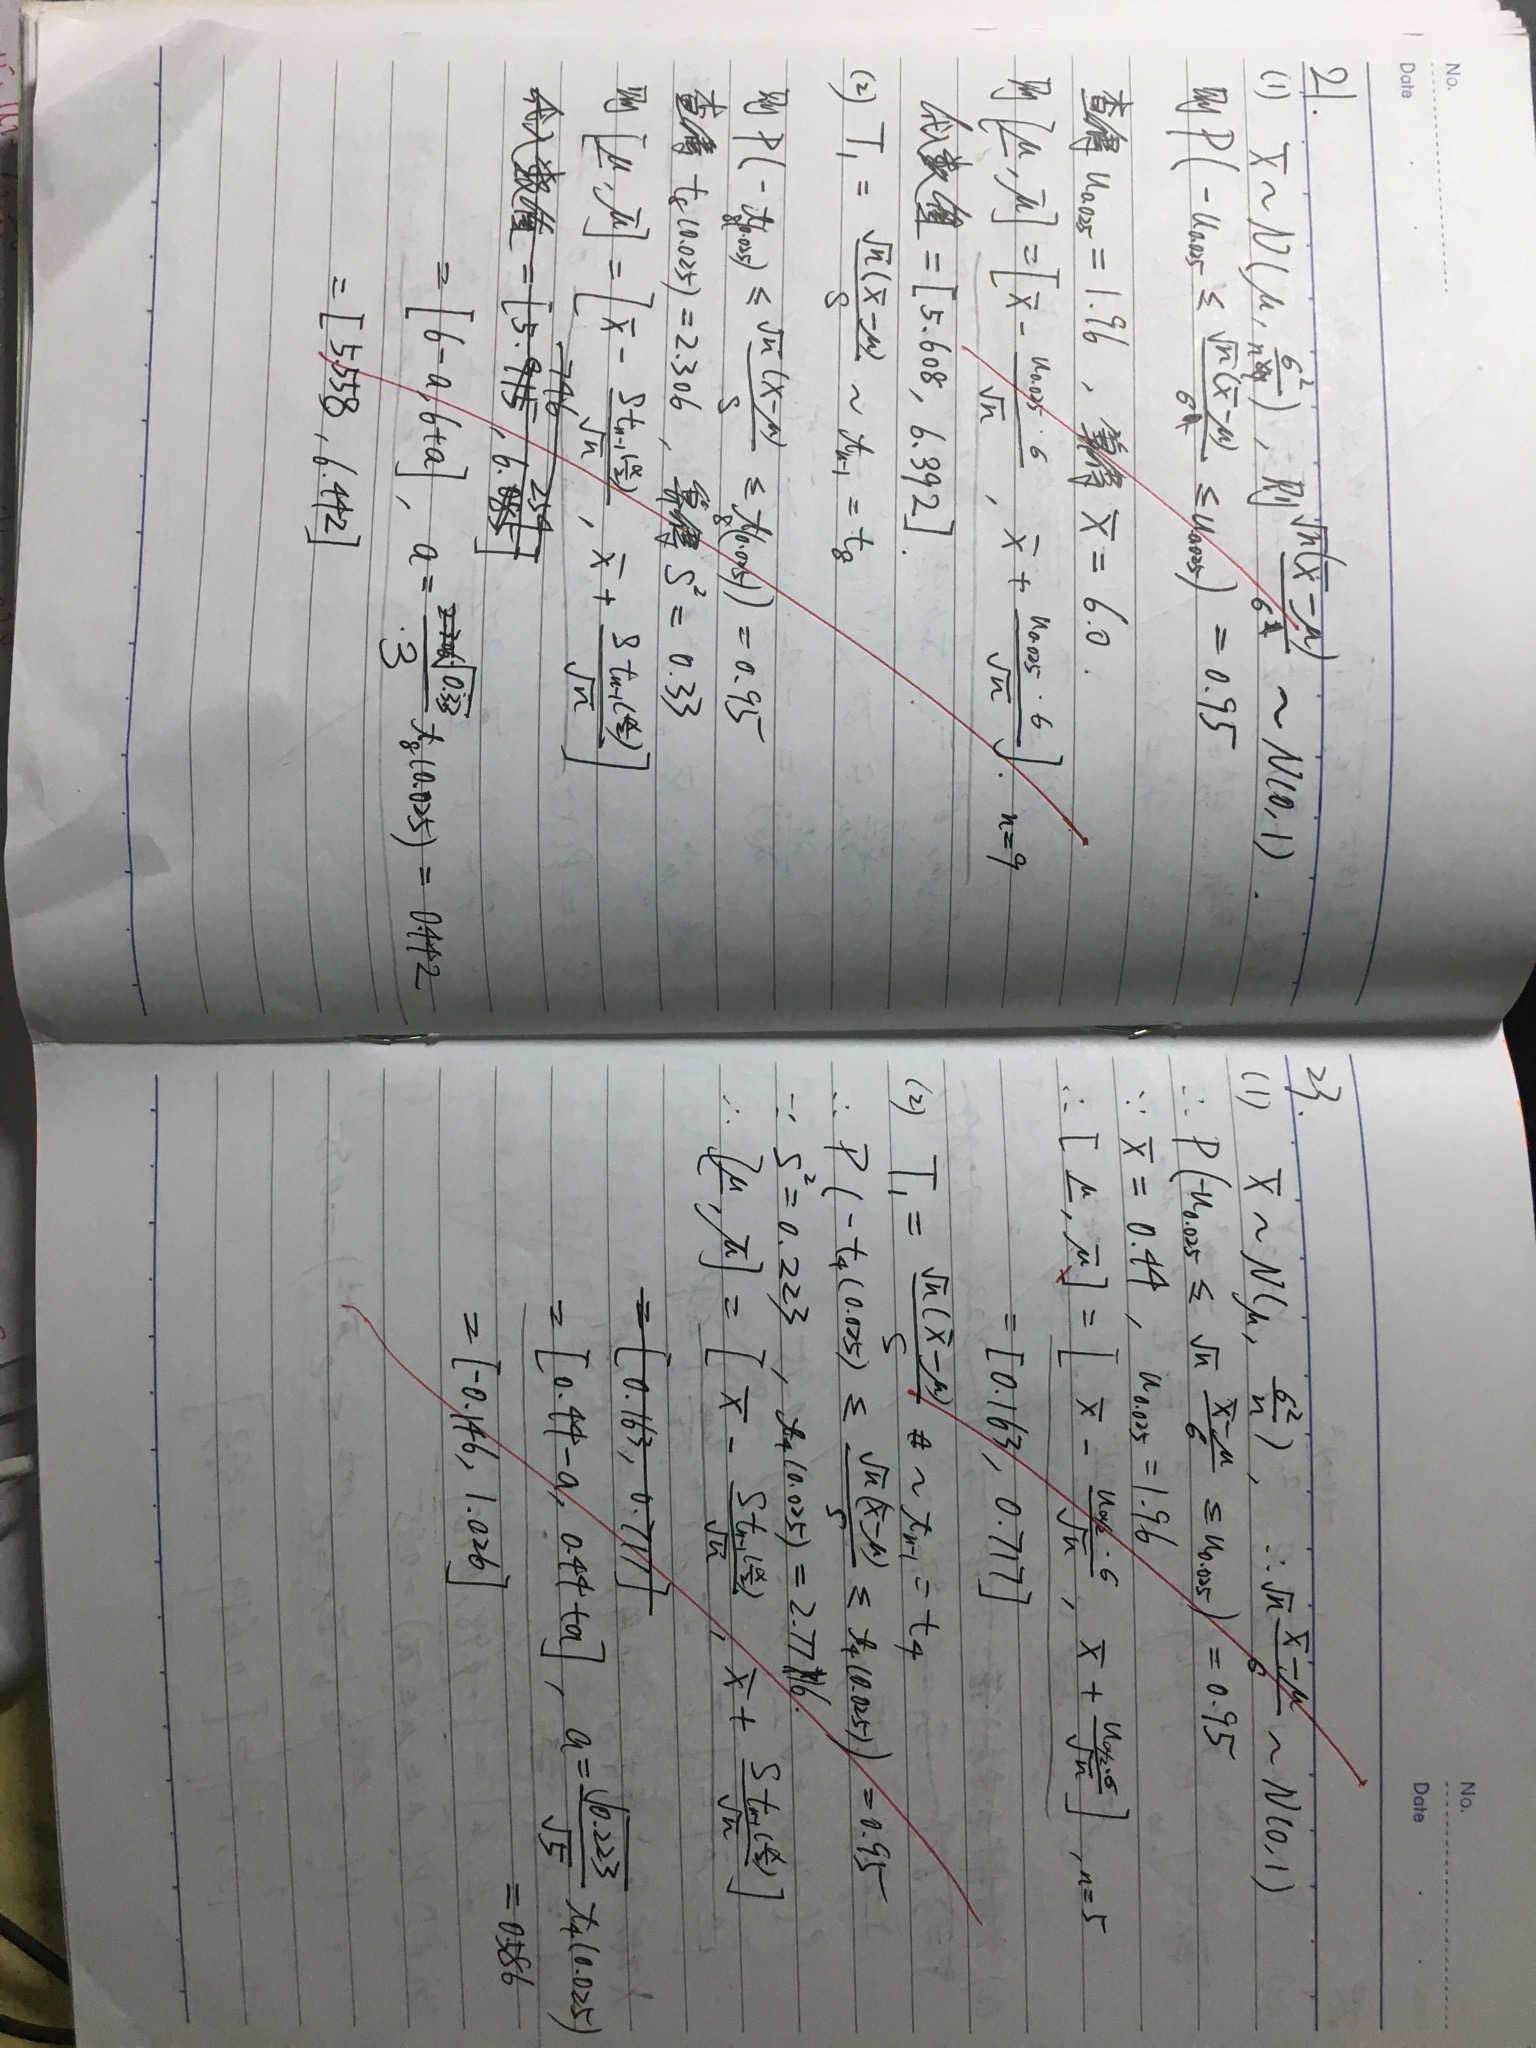 No.
Date
21.
(1) X̄ ~ N(μ, σ²/n), 则 √n(X̄-μ)/σ ~ N(0,1).
则 P(-u₀.₀₂₅ ≤ √n(X̄-μ)/σ ≤ u₀.₀₂₅) = 0.95
查得 u₀.₀₂₅ = 1.96, 算得 X̄ = 6.0.
则 [μ̲, μ̄] = [X̄ - u₀.₀₂₅·σ/√n, X̄ + u₀.₀₂₅·σ/√n]. n=9
代入数值 = [5.608, 6.392].
(2) T₁ = √n(X̄-μ)/S ~ tₙ₋₁ = t₈
则 P(-t₈(0.025) ≤ √n(X̄-μ)/S ≤ t₈(0.025)) = 0.95
查得 t₈(0.025) = 2.306, 算得 S² = 0.33
则 [μ̲, μ̄] = [X̄ - Stₙ₋₁(α/2)/√n, X̄ + Stₙ₋₁(α/2)/√n]
代入数值
= [6-a, 6+a], a = √0.33/3 t₈(0.025) = 0.442
= [5.558, 6.442]
No.
Date
23.
(1) X̄ ~ N(μ, σ²/n), ∴ √n (X̄-μ)/σ ~ N(0,1)
∴ P(-u₀.₀₂₅ ≤ √n (X̄-μ)/σ ≤ u₀.₀₂₅) = 0.95
∵ X̄ = 0.44, u₀.₀₂₅ = 1.96
∴ [μ̲, μ̄] = [X̄ - u_α/₂·σ/√n, X̄ + u_α/₂·σ/√n], n=5
= [0.163, 0.717]
(2) T₁ = √n(X̄-μ)/S ~ tₙ₋₁ = t₄
∴ P(-t₄(0.025) ≤ √n(X̄-μ)/S ≤ t₄(0.025)) = 0.95
∵ S² = 0.223, t₄(0.025) = 2.776.
∴ [μ̲, μ̄] = [X̄ - Stₙ₋₁(α/2)/√n, X̄ + Stₙ₋₁(α/2)/√n]
= [0.163, 0.717]
= [0.44-a, 0.44+a], a = √0.223/√5 t₄(0.025) = 0.586
= [-0.146, 1.026]